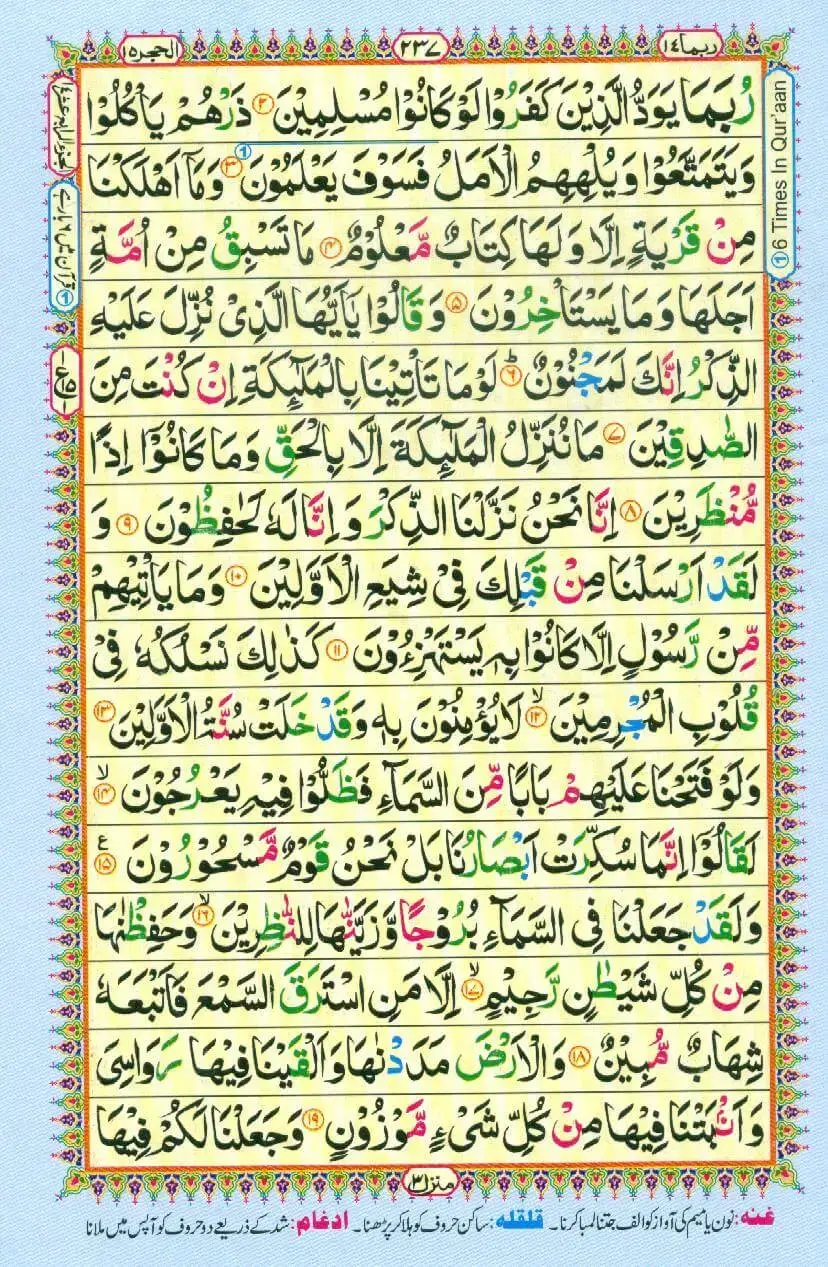 ربما ١٤
٢٣٧
الحجر ١٥
رُبَمَا يَوَدُّ الَّذِيْنَ كَفَرُوْا لَوْ كَانُوْا مُسْلِمِيْنَ ﴿۲﴾ ذَرْهُمْ يَاْكُلُوْا
وَيَتَمَتَّعُوْا وَيُلْهِهِمُ الْاَمَلُ فَسَوْفَ يَعْلَمُوْنَ ﴿۳﴾ وَمَاۤ اَهْلَكْنَا
مِنْ قَرْيَةٍ اِلَّا وَلَهَا كِتَابٌ مَّعْلُوْمٌ ﴿۴﴾ مَا تَسْبِقُ مِنْ اُمَّةٍ
اَجَلَهَا وَمَا يَسْتَاْخِرُوْنَ ﴿۵﴾ وَقَالُوْا يٰۤاَيُّهَا الَّذِيْ نُزِّلَ عَلَيْهِ
الذِّكْرُ اِنَّكَ لَمَجْنُوْنٌ ﴿۶﴾ؕ لَوْمَا تَاْتِيْنَا بِالْمَلٰٓئِكَةِ اِنْ كُنْتَ مِنَ
الصّٰدِقِيْنَ ﴿۷﴾ مَا نُنَزِّلُ الْمَلٰٓئِكَةَ اِلَّا بِالْحَقِّ وَمَا كَانُوْۤا اِذًا
مُّنْظَرِيْنَ ﴿۸﴾ اِنَّا نَحْنُ نَزَّلْنَا الذِّكْرَ وَاِنَّا لَهٗ لَحٰفِظُوْنَ ﴿۹﴾ وَ
لَقَدْ اَرْسَلْنَا مِنْ قَبْلِكَ فِيْ شِيَعِ الْاَوَّلِيْنَ ﴿۱۰﴾ وَمَا يَاْتِيْهِمْ
مِّنْ رَّسُوْلٍ اِلَّا كَانُوْا بِهٖ يَسْتَهْزِءُوْنَ ﴿۱۱﴾ كَذٰلِكَ نَسْلُكُهٗ فِيْ
قُلُوْبِ الْمُجْرِمِيْنَ ﴿۱۲﴾ۙ لَا يُؤْمِنُوْنَ بِهٖ وَقَدْ خَلَتْ سُنَّةُ الْاَوَّلِيْنَ ﴿۱۳﴾
وَلَوْ فَتَحْنَا عَلَيْهِمْ بَابًا مِّنَ السَّمَآءِ فَظَلُّوْا فِيْهِ يَعْرُجُوْنَ ﴿۱۴﴾ۙ
لَقَالُوْۤا اِنَّمَا سُكِّرَتْ اَبْصَارُنَا بَلْ نَحْنُ قَوْمٌ مَّسْحُوْرُوْنَ ﴿۱۵﴾ ع
وَلَقَدْ جَعَلْنَا فِي السَّمَآءِ بُرُوْجًا وَّزَيَّنّٰهَا لِلنّٰظِرِيْنَ ﴿۱۶﴾ۙ وَحَفِظْنٰهَا
مِنْ كُلِّ شَيْطٰنٍ رَّجِيْمٍ ﴿۱۷﴾ۙ اِلَّا مَنِ اسْتَرَقَ السَّمْعَ فَاَتْبَعَهٗ
شِهَابٌ مُّبِيْنٌ ﴿۱۸﴾ وَالْاَرْضَ مَدَدْنٰهَا وَاَلْقَيْنَا فِيْهَا رَوَاسِيَ
وَاَنْۢبَتْنَا فِيْهَا مِنْ كُلِّ شَيْءٍ مَّوْزُوْنٍ ﴿۱۹﴾ وَجَعَلْنَا لَكُمْ فِيْهَا
① 6 Times In Qur'aan
① قرآن میں ۶ بار ہے
منزل ۳
غنه: نون یا میم کی آواز کو الف جتنا لمبا کرنا۔ قلقله: ساکن حروف کو ہلا کر پڑھنا۔ ادغام: شد کے ذریعے دو حروف کو آپس میں ملانا